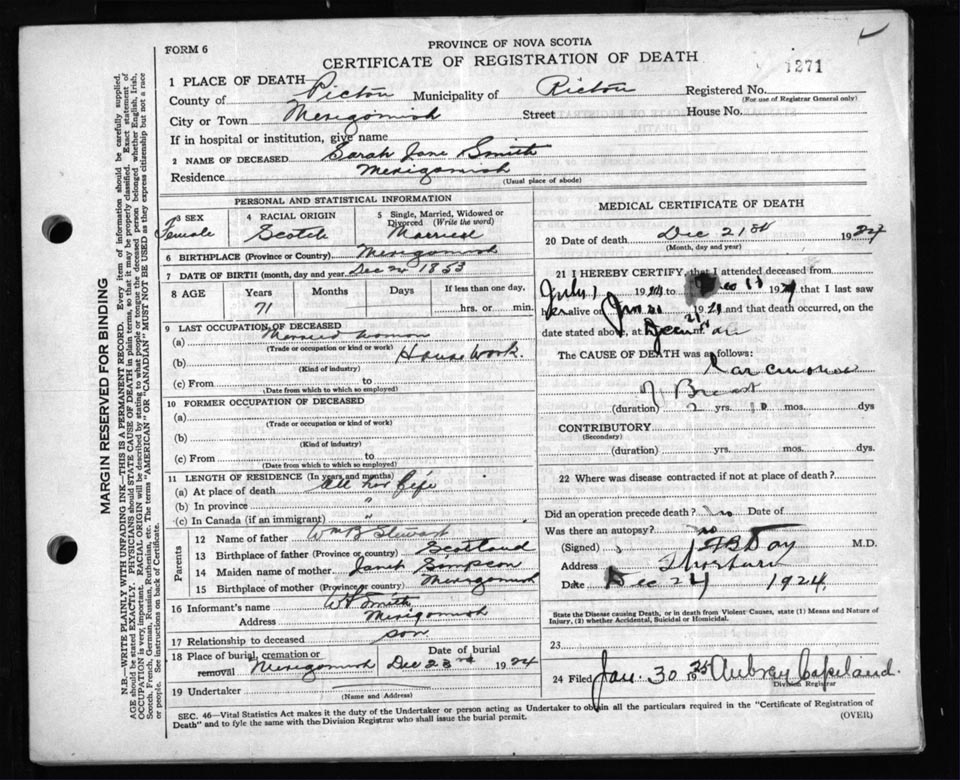 FORM 6
PROVINCE OF NOVA SCOTIA
CERTIFICATE OF REGISTRATION OF DEATH
1271
1 PLACE OF DEATH
County of Pictou Municipality of Pictou Registered No.
(For use of Registrar General only)
City or Town Merigomish Street House No.
If in hospital or institution, give name
2 NAME OF DECEASED Sarah Jane Smith
Residence Merigomish
(Usual place of abode)
PERSONAL AND STATISTICAL INFORMATION
3 SEX Female
4 RACIAL ORIGIN Scotch
5 Single, Married, Widowed or Divorced (Write the word) Married
6 BIRTHPLACE (Province or Country) Merigomish
7 DATE OF BIRTH (month, day and year) Dec 24 1853
8 AGE Years Months Days If less than one day,
71 hrs. or min.
9 LAST OCCUPATION OF DECEASED
(a) Married woman
(Trade or occupation or kind of work)
(b) House work.
(Kind of industry)
(c) From to
(Date from which to which so employed)
10 FORMER OCCUPATION OF DECEASED
(a)
(Trade or occupation or kind of work)
(b)
(Kind of industry)
(c) From to
(Date from which to which so employed)
11 LENGTH OF RESIDENCE (In years and months)
(a) At place of death All her life
(b) In province "
(c) In Canada (if an immigrant) "
Parents
12 Name of father Wm B Stewart
13 Birthplace of father (Province or country) Scotland
14 Maiden name of mother Janet Simpson
15 Birthplace of mother (Province or country) Merigomish
16 Informant's name Smith
Address Merigomish
17 Relationship to deceased son
18 Place of burial, cremation or removal Merigomish
Date of burial Dec 23rd 1924
19 Undertaker
(Name and Address)
MEDICAL CERTIFICATE OF DEATH
20 Date of death Dec 21st 1924
(Month, day and year)
21 I HEREBY CERTIFY, that I attended deceased from
July 1 19 to 19 that I last saw
her alive on 19 and that death occurred, on the
date stated above, at
The CAUSE OF DEATH was as follows:
Carcinoma
of Breast
(duration) 2 yrs. 10 mos. dys
CONTRIBUTORY
(Secondary)
(duration) yrs. mos. dys
22 Where was disease contracted if not at place of death?
Did an operation precede death? no Date of
Was there an autopsy? no
(Signed) Day M.D.
Address Thorburn
Date Dec 24 1924
State the Disease causing Death, or in death from Violent Causes, state (1) Means and Nature of Injury, (2) whether Accidental, Suicidal or Homicidal.
23
24 Filed Jan. 30 1925 Aubrey Copeland.
Division Registrar
SEC. 46—Vital Statistics Act makes it the duty of the Undertaker or person acting as Undertaker to obtain all the particulars required in the "Certificate of Registration of
Death" and to fyle the same with the Division Registrar who shall issue the burial permit.
(OVER)
MARGIN RESERVED FOR BINDING
N.B.—WRITE PLAINLY WITH UNFADING INK—THIS IS A PERMANENT RECORD. Every item of information should be carefully supplied.
AGE should be stated EXACTLY. PHYSICIANS should STATE CAUSE OF DEATH in plain terms, so that it may be properly classified. Exact statement of
OCCUPATION is very important. RACIAL ORIGIN will be described by stating to what people or tongue the deceased person belonged whether English, Irish,
Scotch, French, German, Russian, Ruthenian, etc. The terms "AMERICAN" OR "CANADIAN" MUST NOT BE USED as they express citizenship but not a race
or people. See instructions on back of Certificate.